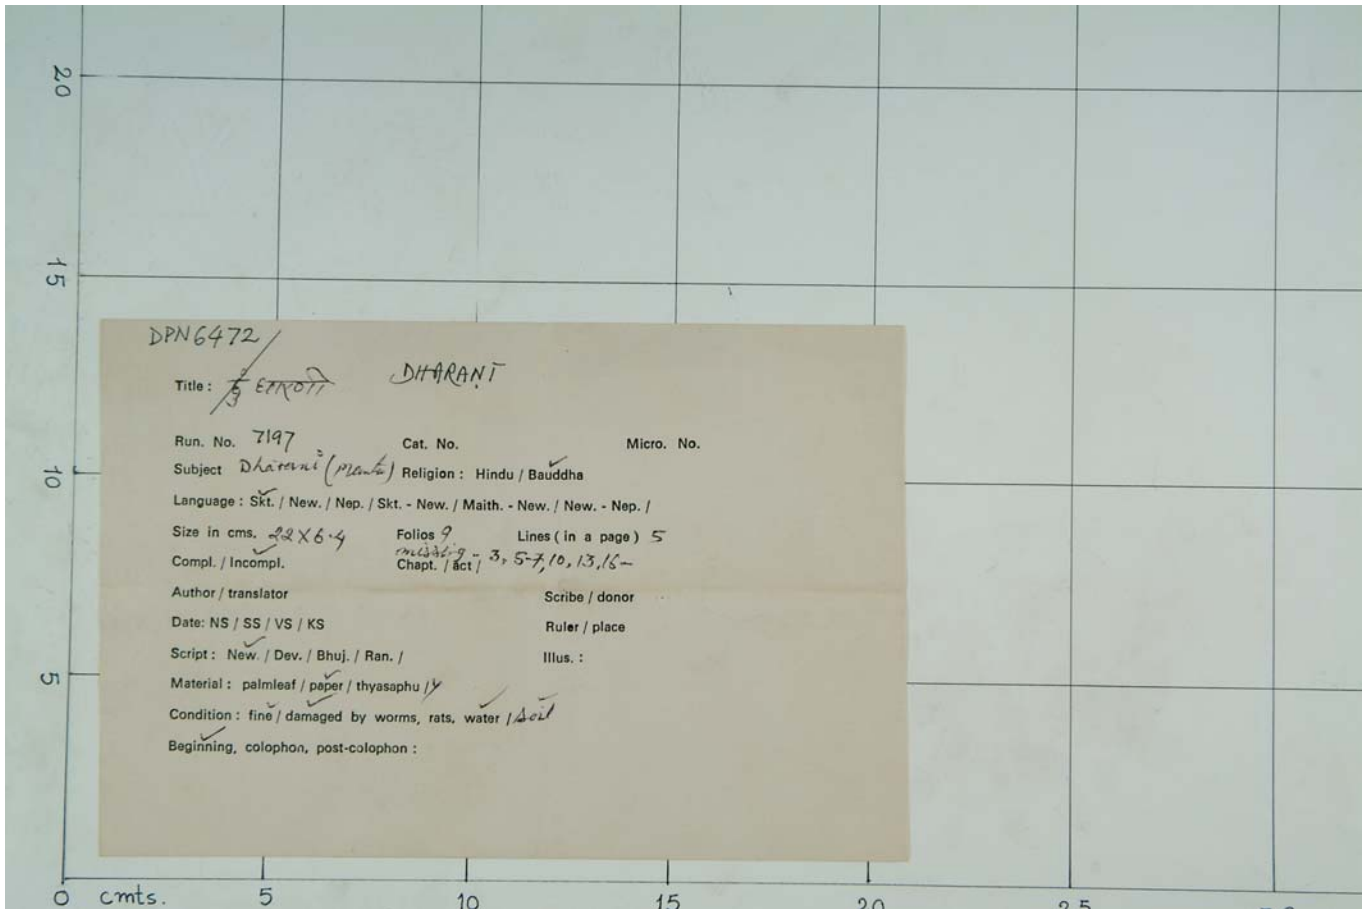 20
15
10
5
DPN6472
Title : DHARANI
Run. No. 7197 Cat. No. Micro. No.
Subject Dhāranī ( ) Religion : Hindu / Bauddha
Language : Skt. / New. / Nep. / Skt. - New. / Maith. - New. / New. - Nep. /
Size in cms. 22X6.4 Folios 9 Lines ( in a page ) 5
Compl. / Incompl. Chapt. / act / missing - 3, 5-7, 10, 13, 16-
Author / translator Scribe / donor
Date: NS / SS / VS / KS Ruler / place
Script : New. / Dev. / Bhuj. / Ran. / Illus. :
Material : palmleaf / paper / thyasaphu / y
Condition : fine / damaged by worms, rats, water / Soil
Beginning, colophon, post-colophon :
0 cmts. 5 10 15 20 25